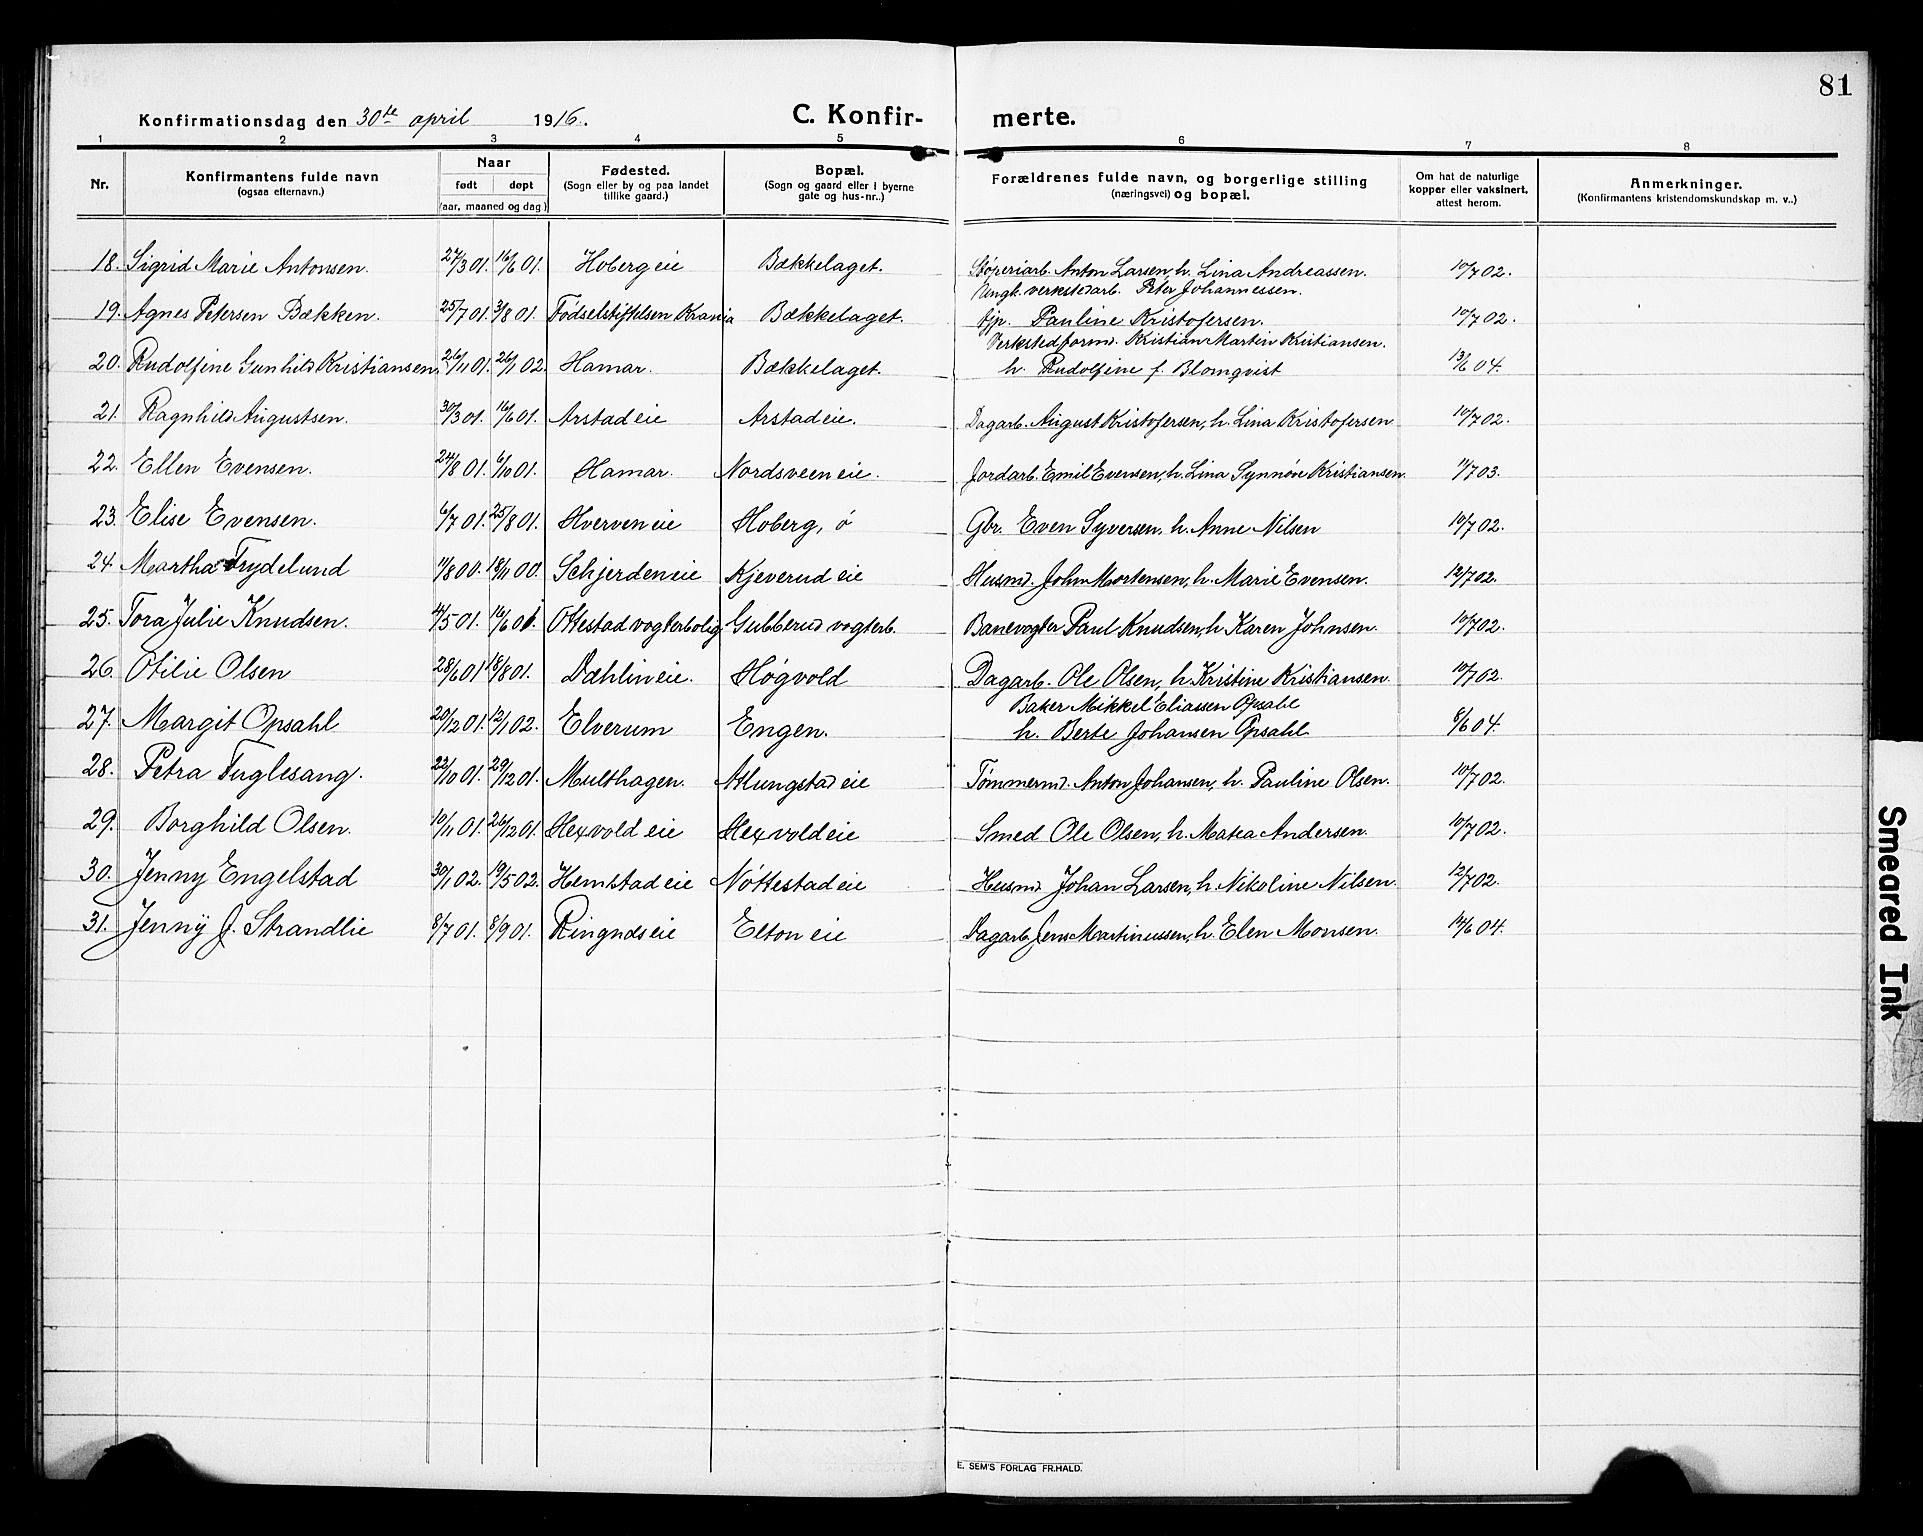 81
Konfirmationsdag den 30te april 1916. C. Konfir- merte.
1 2 3 4 5 6 7 8
Nr. Konfirmantens fulde navn (ogsaa efternavn.) Naar født døpt (aar, maaned og dag.) Fødested. (Sogn eller by og paa landet tillike gaard.) Bopæl. (Sogn og gaard eller i byerne gate og hus-nr..) Forældrenes fulde navn, og borgerlige stilling (næringsvei) og bopæl. Om hat de naturlige kopper eller vaksinert, attest herom. Anmerkninger. (Konfirmantens kristendomskundskap m. v..)
18. Sigrid Marie Antonsen. 27/3 01. 16/6 01. Hoberg eie Bækkelaget. Støperiarb. Anton Larsen, h. Lina Andreassen. 10/7 02.
Ungk. verkstedarb. Peter Johannessen.
19. Agnes Petersen Bækken. 25/7 01. 3/8 01. Fødselstiftelsen Krania Bækkelaget. tjp. Pauline Kristofersen. 10/7 02.
Verkstedformd. Kristian Martin Kristiansen.
20. Rudolfine Gunhild Kristiansen. 26/11 01. 26/1 02 Hamar. Bækkelaget. h. Rudolfine f. Blomqvist 13/6 04.
21. Ragnhild Augustsen. 30/3 01. 16/6 01. Arstad eie Arstad eie. Dagarb. August Kristofersen, h. Lina Kristofersen 10/7 02.
22. Ellen Evensen. 24/8 01. 6/10 01. Hamar. Nordsveen eie. Jordarb. Emil Evensen, h. Lina Synnøve Kristiansen. 11/7 03.
23. Elise Evensen. 6/7 01. 25/8 01. Hverven eie Hoberg, ø Gbr. Even Syversen, h. Anne Nilsen 10/7 02.
24. Martha Frydelund 11/8 00. 18/11 00. Schjerden eie Kjeverud eie Husmd. John Mortensen, h. Marie Evensen. 12/7 02.
25. Tora Julie Knudsen. 4/5 01. 16/6 01. Ottestad vogterbolig. Gubberud vogterb. Banevogter Paul Knudsen, h. Karen Johnsen. 10/7 02.
26. Otilie Olsen 28/6 01 18/8 01. Dæhlin eie. Høgvold Dagarb. Ole Olsen, h. Kristine Kristiansen. 10/7 02.
Baker Mikkel Eliassen Opsahl
27. Margit Opsahl 20/12 01. 12/1 02. Elverum Engen. h. Berte Johansen Opsahl. 8/6 04.
28. Petra Fuglesang. 22/10 01. 29/12 01. Multhagen. Atlungstad eie Tømmermd. Anton Johansen, h. Pauline Olsen. 10/7 02.
29. Borghild Olsen. 10/11 01. 26/12 01. Hexvold eie Hexvold eie Smed Ole Olsen, h. Matea Andersen. 10/7 02.
30. Jenny Engelstad 30/1 02. 19/5 02. Hemstad eie Nøttestad eie Husmd. Johan Larsen, h. Nikoline Nilsen. 12/7 02.
31. Jenny J. Strandlie 8/7 01. 8/9 01. Ringnds eie Elton eie Dagarb. Jens Martinussen, h. Elen Monsen. 14/6 04.
E. SEM'S FORLAG FR.HALD.
Smeared Ink